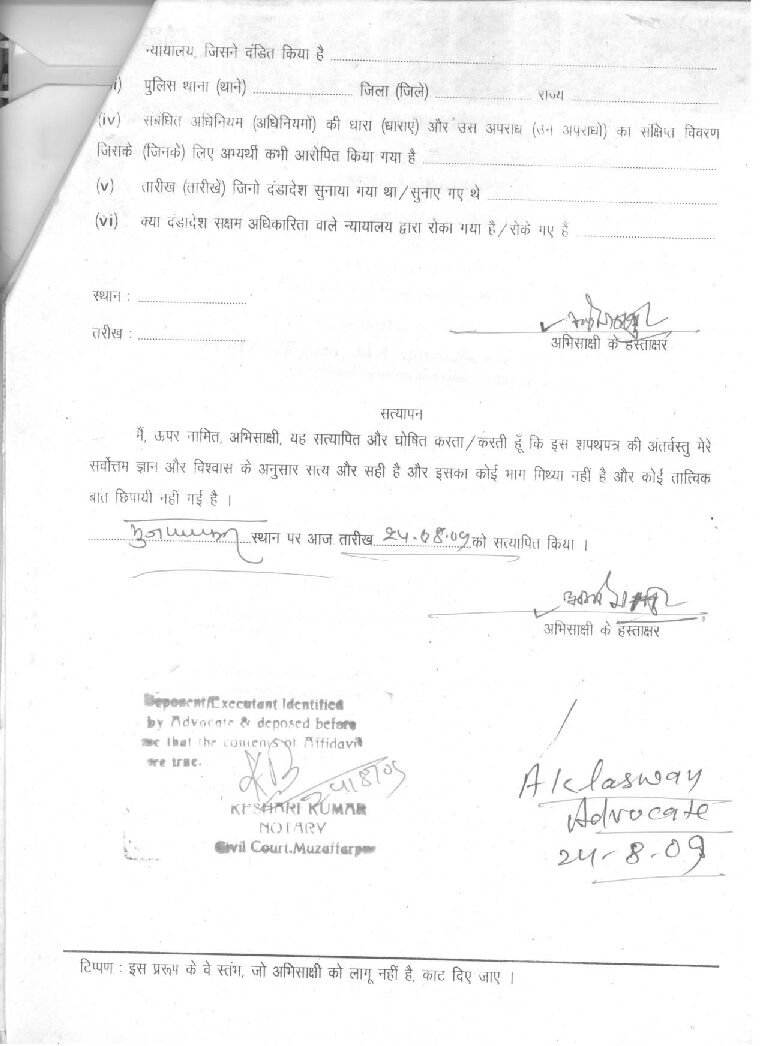 न्यायालय, जिसने दंडित किया है
i) पुलिस थाना (थाने) जिला (जिले) राज्य
(iv) सबंधित अधिनियम (अधिनियमों) की धारा (धाराएं) और उस अपराध (उन अपराधों) का संक्षिप्त विवरण
जिसके (जिनके) लिए अभ्यर्थी कभी आरोपित किया गया है
(v) तारीख (तारीखें) जिनो दंडादेश सुनाया गया था/सुनाए गए थे
(vi) क्या दंडादेश सक्षम अधिकारिता वाले न्यायालय द्वारा रोका गया है/रोके गए हैं
स्थान :
तरीख :
अभिसाक्षी के हस्ताक्षर
सत्यापन
मैं, ऊपर नामित, अभिसाक्षी, यह सत्यापित और घोषित करता/करती हूँ कि इस शपथपत्र की अंतर्वस्तु मेरे
सर्वोत्तम ज्ञान और विश्वास के अनुसार सत्य और सही है और इसका कोई भाग मिथ्या नहीं है और कोई तात्विक
बात छिपायी नही गई है ।
स्थान पर आज तारीख 24.08.09 को सत्यापित किया ।
अभिसाक्षी के हस्ताक्षर
Deponent/Executant Identified
by Advocate & deposed before
me that the contents of Affidavit
are true.
24/8/09
KESHARI KUMAR
NOTARY
Civil Court.Muzaffarpur
Advocate
24-8-09
टिप्पण : इस प्ररूप के वे स्तंभ, जो अभिसाक्षी को लागू नहीं है, काट दिए जाए ।